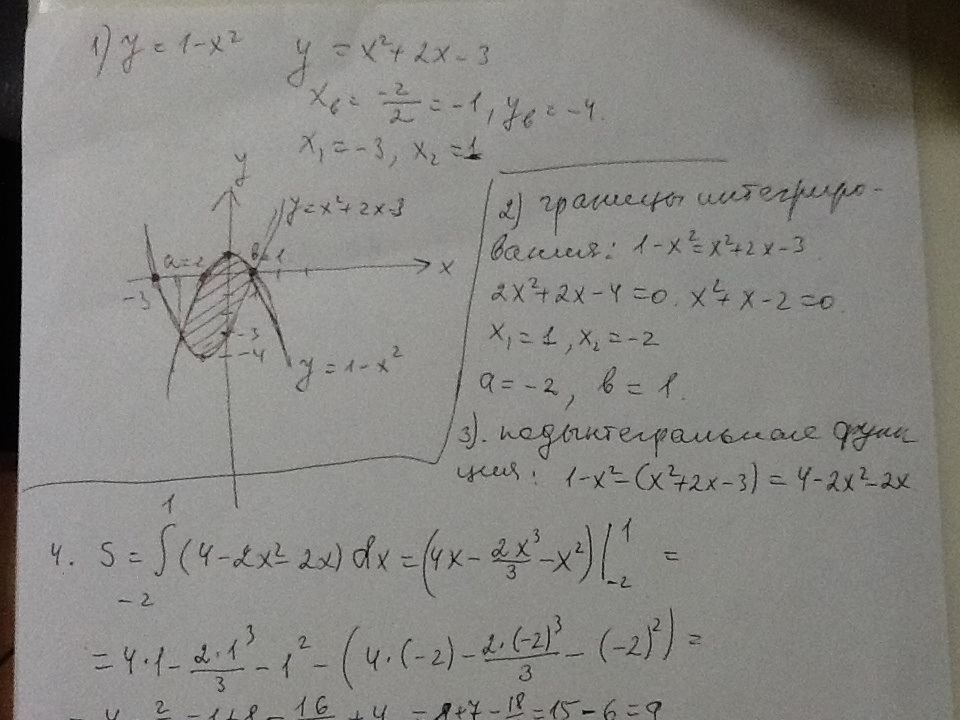 1) y = 1-x² y = x²+2x-3
xв = -2/2 = -1, yв = -4.
x₁ = -3, x₂ = 1
y
y=x²+2x-3
a=-2 в=1
x
-3
-3
-4
y = 1-x²
2) границы интегриро-
вания: 1-x²=x²+2x-3
2x²+2x-4=0. x²+x-2=0.
x₁=1, x₂=-2
a=-2, в=1.
3). подынтегральная функ
ция: 1-x²-(x²+2x-3)=4-2x²-2x
4. S = ∫₋₂¹ (4-2x²-2x) dx = (4x - 2x³/3 - x²)|₋₂¹ =
= 4·1 - 2·1³/3 - 1² - (4·(-2) - 2·(-2)³/3 - (-2)²) =
= 4 - 2/3 - 1+8 - 16/ +4 = 8+7 - 18/ = 15-6=9